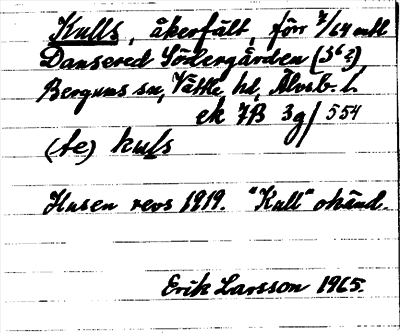 Kulls, åkerfält, förr 7/64 mtl
Dansered Södergården (5⁶²),
Bergums sn, Vättle hd, Älvsb. l.
ek 7B 3g/554
(te) kuls
Husen revs 1919. "Kull" okänd.
Erik Larsson 1965.